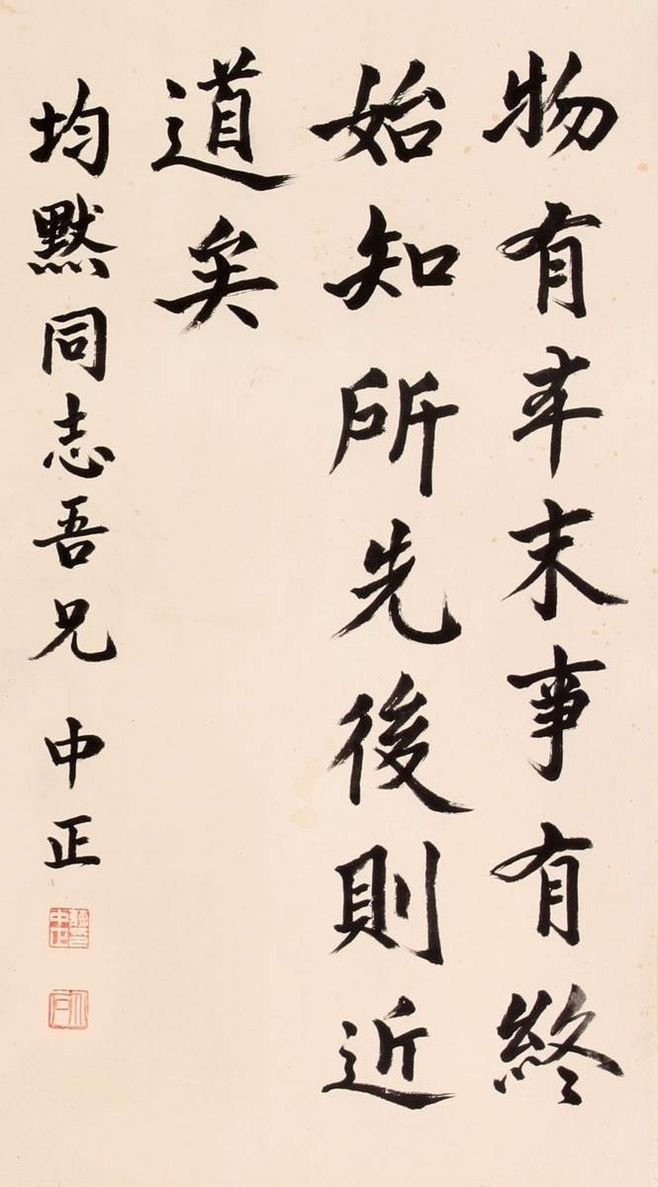 物有本末事有終
始知所先後則近
道矣
均默同志吾兄 中正
蔣印中正
介石